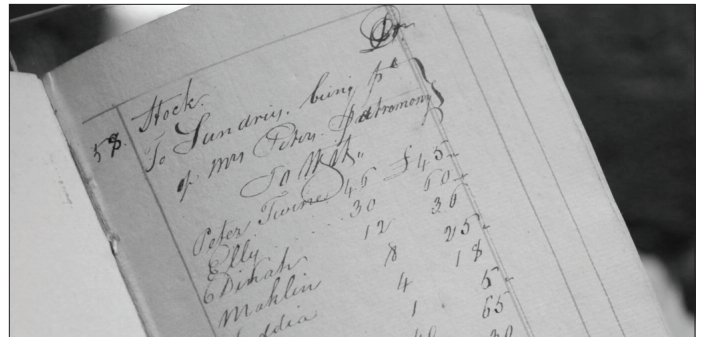 Dr
Stock.
58. To Sundries, being pt
of Mrs Peters Patromony
To Wit,,
Peter Twine 46 £45
Elly . . . . 30 60
Dinah 12 36
Mahlin 8 25
4 18
1 5
40 65
30